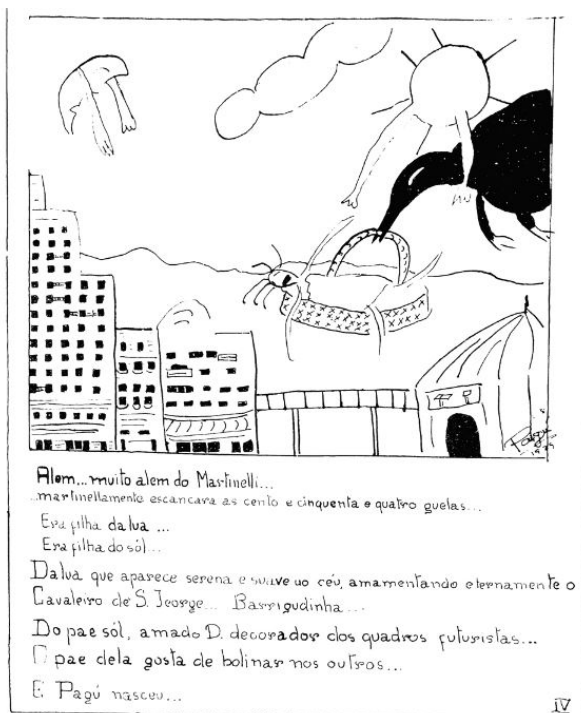 Pagú
Alem...muito alem do Martinelli...
...martinellamente escancara as cento e cinquenta e quatro guelas...
Era filha da lua ...
Era filha do sól...
Da lua que aparece serena e suave no céu, amamentando eternamente o
Cavaleiro de S. Jeorge... Barrigudinha...
Do pae sól, amado D. decorador dos quadros futuristas...
O pae dela gosta de bolinar nos outros...
E Pagú nasceu...
IV